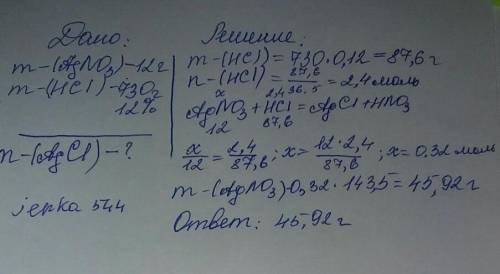 Дано:
m-(AgNO3)-12г
m-(HCl)-730г
12%
n-(AgCl)-?
jerka 544
Решение:
m-(HCl)=730·0,12=87,6г
n-(HCl)=87,6/36·5=2,4моль
x 2,4
AgNO3+HCl=AgCl+HNO3
12 87,6
x/12=2,4/87,6; x=12·2,4/87,6; x=0,32 моль
m-(AgNO3)0,32·143,5=45,92г
Ответ: 45,92г